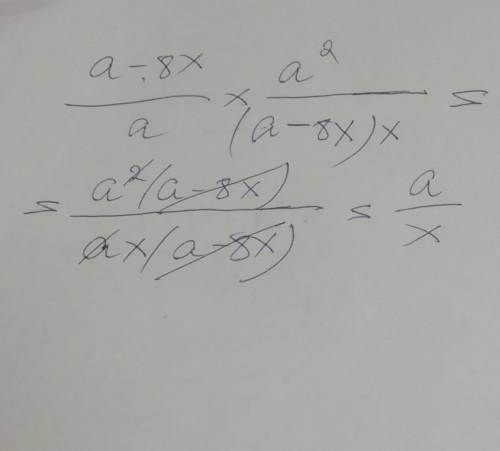 (a-8x)/a × a²/((a-8x)x) =
= a²(a-8x)/(ax(a-8x)) = a/x